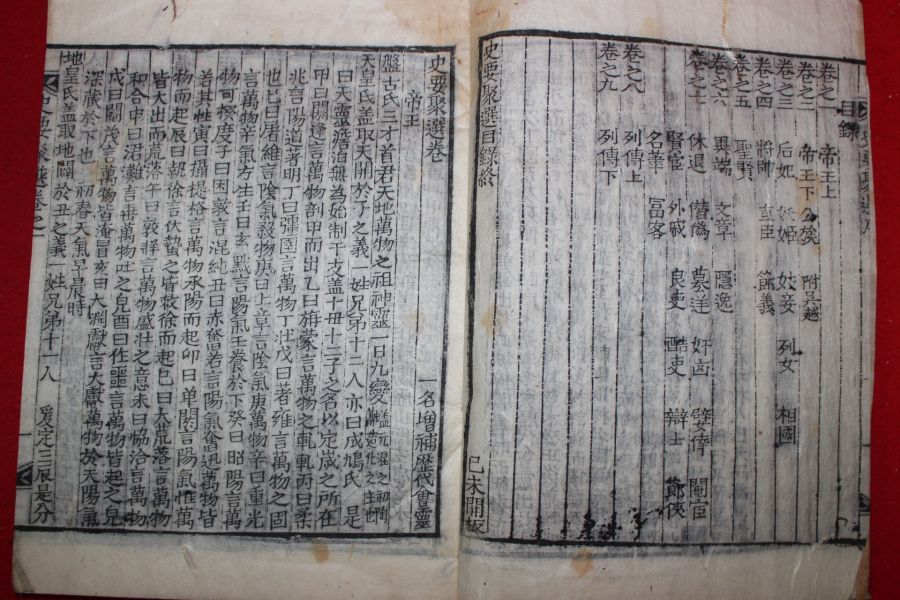 目錄
卷之一 帝王上
卷之二 帝王下 公矦 附吳越
卷之三 后妃 妖姬 妓妾 列女 相國
卷之四 將帥 直臣 節義
卷之五 聖賢
卷之六 異端 文章 隱逸
卷之七 休退 僣僞 篡逆 奸凶 嬖倖 閹宦
賢宦 外戚 良吏 酷吏 辯士 節俠
名筆 冨客
卷之八 列傳上
卷之九 列傳下
史要聚選目録終
己未開板
史要聚選卷 一名增補歷代會靈
帝王
盤古氏三才首君天地萬物之祖神靈一日九變 盖元混之初陶融造化之主也
天皇氏盖取天開於子之義一姓兄弟十二人亦曰成鳩氏 是
曰天靈澹泊無為始制干支盖十毋十二子之名以定歲之所在
甲曰閼逢言萬物剖甲而出乙曰旃蒙言萬物之軋軋丙曰柔
兆言陽道著明丁曰彊圉言萬物丁壯戊曰著雍言萬物之固
也己曰屠維言陰氣殺物庚曰上章言陰氣庚萬物辛曰重光
言萬物辛氣方生壬曰玄黓言陽氣壬養於下癸曰昭陽言萬
物可揆度子曰困敦言混沌丑曰赤奮若言陽氣奮迅萬物皆
若其性寅曰攝提格言萬物承陽而起卯曰单閼言陽氣惟萬
物而起辰曰執徐言伏蟄之皆敕徐而起巳曰大荒落言萬物
皆大出而荒落午曰敦牂言萬物盛壯之意未曰協洽言萬物
和合申曰涒灘言萬物吐之皃酉曰作噩言萬物皆起之皃
戌曰閹茂言萬物皆淹冒亥曰大淵獻言大獻萬物於天陽氣
深藏於下也 初春天氣早晨時
地皇氏盖取地闢於丑之義 姓兄弟十一人 爰定三辰是分